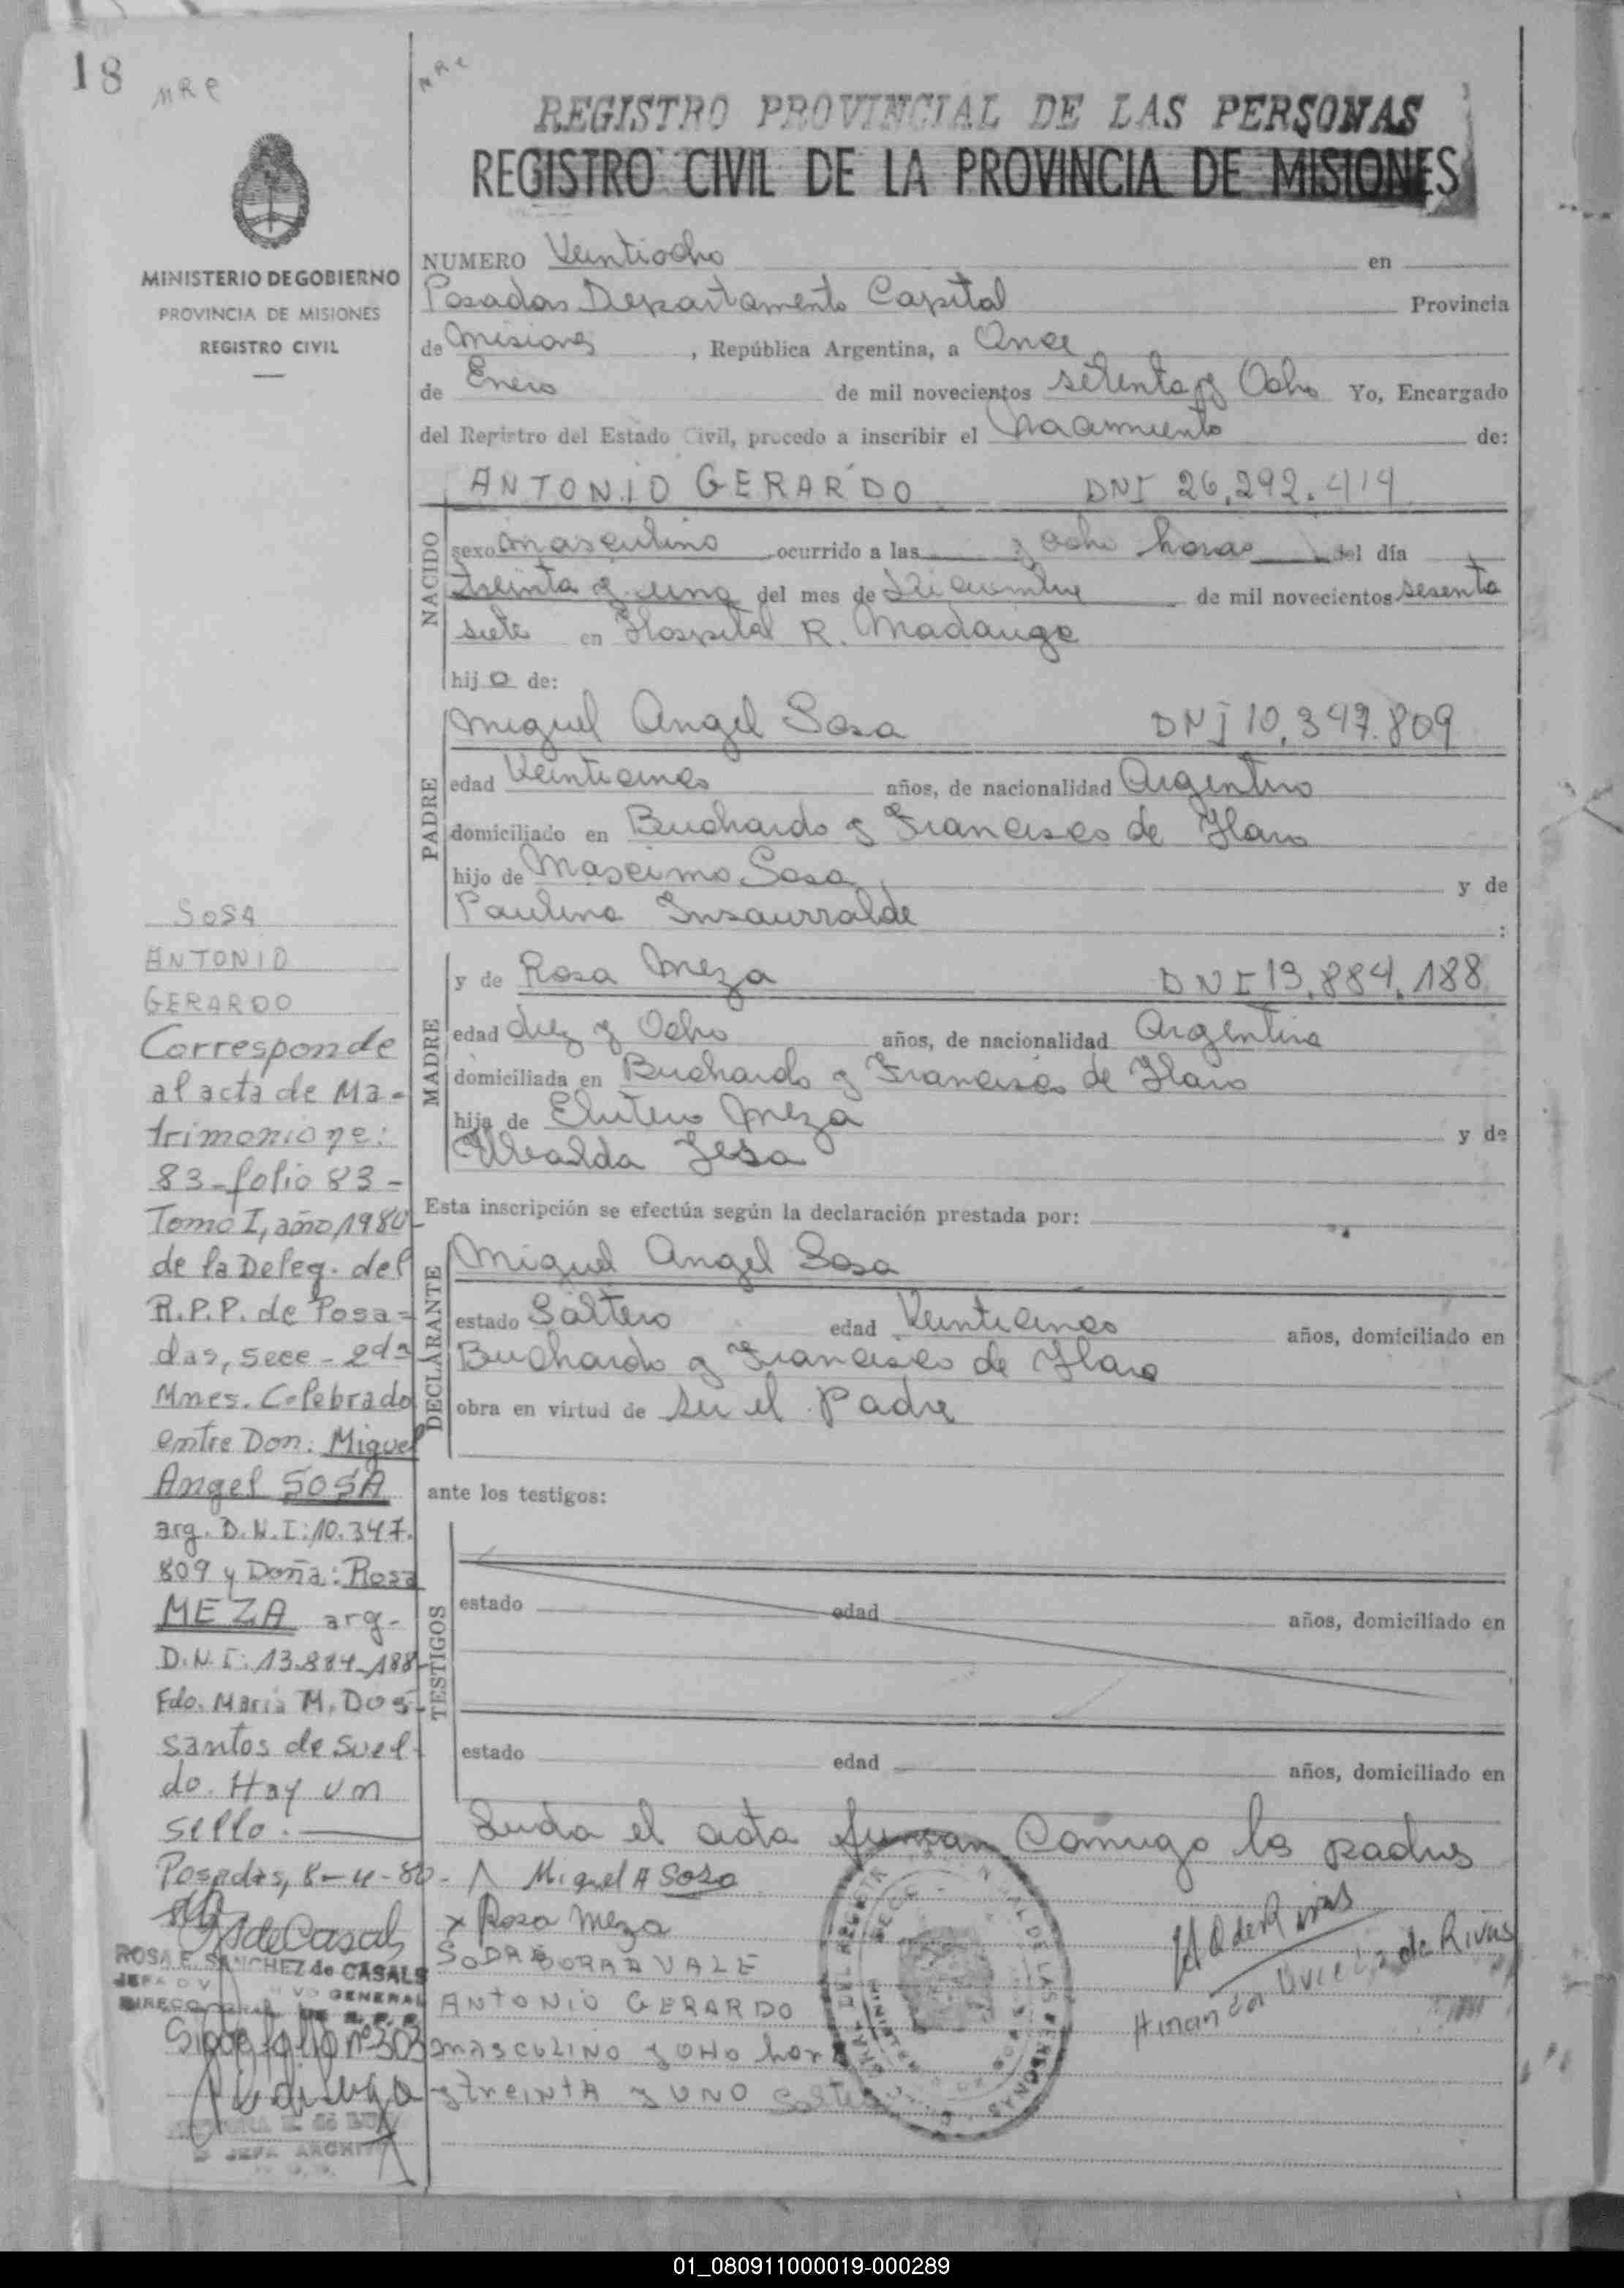 18
NRC
NRC
REGISTRO PROVINCIAL DE LAS PERSONAS
REGISTRO CIVIL DE LA PROVINCIA DE MISIONES
MINISTERIO DE GOBIERNO
PROVINCIA DE MISIONES
REGISTRO CIVIL
NUMERO Veintiocho en
Posadas Departamento Capital Provincia
de Misiones, República Argentina, a Once
de Enero de mil novecientos setenta y Ocho Yo, Encargado
del Registro del Estado Civil, procedo a inscribir el Nacimiento de:
ANTONIO GERARDO DNI 26.292.414
NACIDO
sexo masculino ocurrido a las y ocho horas del día
treinta y uno del mes de Diciembre de mil novecientos sesenta
siete en Hospital R. Madariaga
hijo de:
PADRE
Miguel Angel Sosa DNI 10.347.809
edad Veinticinco años, de nacionalidad Argentino
domiciliado en Buchardo y Francisco de Haro
hijo de Mascimo Sosa y de
Paulina Insaurralde :
MADRE
y de Rosa Meza DNI 13.884.188
edad diez y Ocho años, de nacionalidad Argentina
domiciliada en Buchardo y Francisco de Haro
hija de Eluterio Meza y de
Ubalda
Esta inscripción se efectúa según la declaración prestada por:
DECLARANTE
Miguel Angel Sosa
estado Soltero edad Veinticinco años, domiciliado en
Buchardo y Francisco de Haro
obra en virtud de ser el Padre
ante los testigos:
TESTIGOS
estado edad años, domiciliado en
estado edad años, domiciliado en
Leída el acta firman Conmigo los padres
Miguel A Sosa
x Rosa Meza
SOBRE BORRADO VALE
ANTONIO GERARDO
MASCULINO y OCHO hora
y treinta y UNO Soltero
SOSA
ANTONIO
GERARDO
Corresponde
al acta de Ma=
trimonio nº:
83-folio 83-
Tomo I, año 1980
de la Deleg. del
R.P.P. de Posa=
das, secc-2da
Mnes. Celebrado
entre Don: Miguel
Angel SOSA
arg. D.N.I: 10.347.
809 y Doña: Rosa
MEZA arg-
D.N.I: 13.884-188-
Fdo. Maria M. Dos
santos de Suel-
do. Hay un
sello.
Posadas, 8-4-80-
ROSA E. SANCHEZ de CASALS
Sigue folio nº 303
JEFA ARCHIVO
de Rivas
01_080911000019-000289